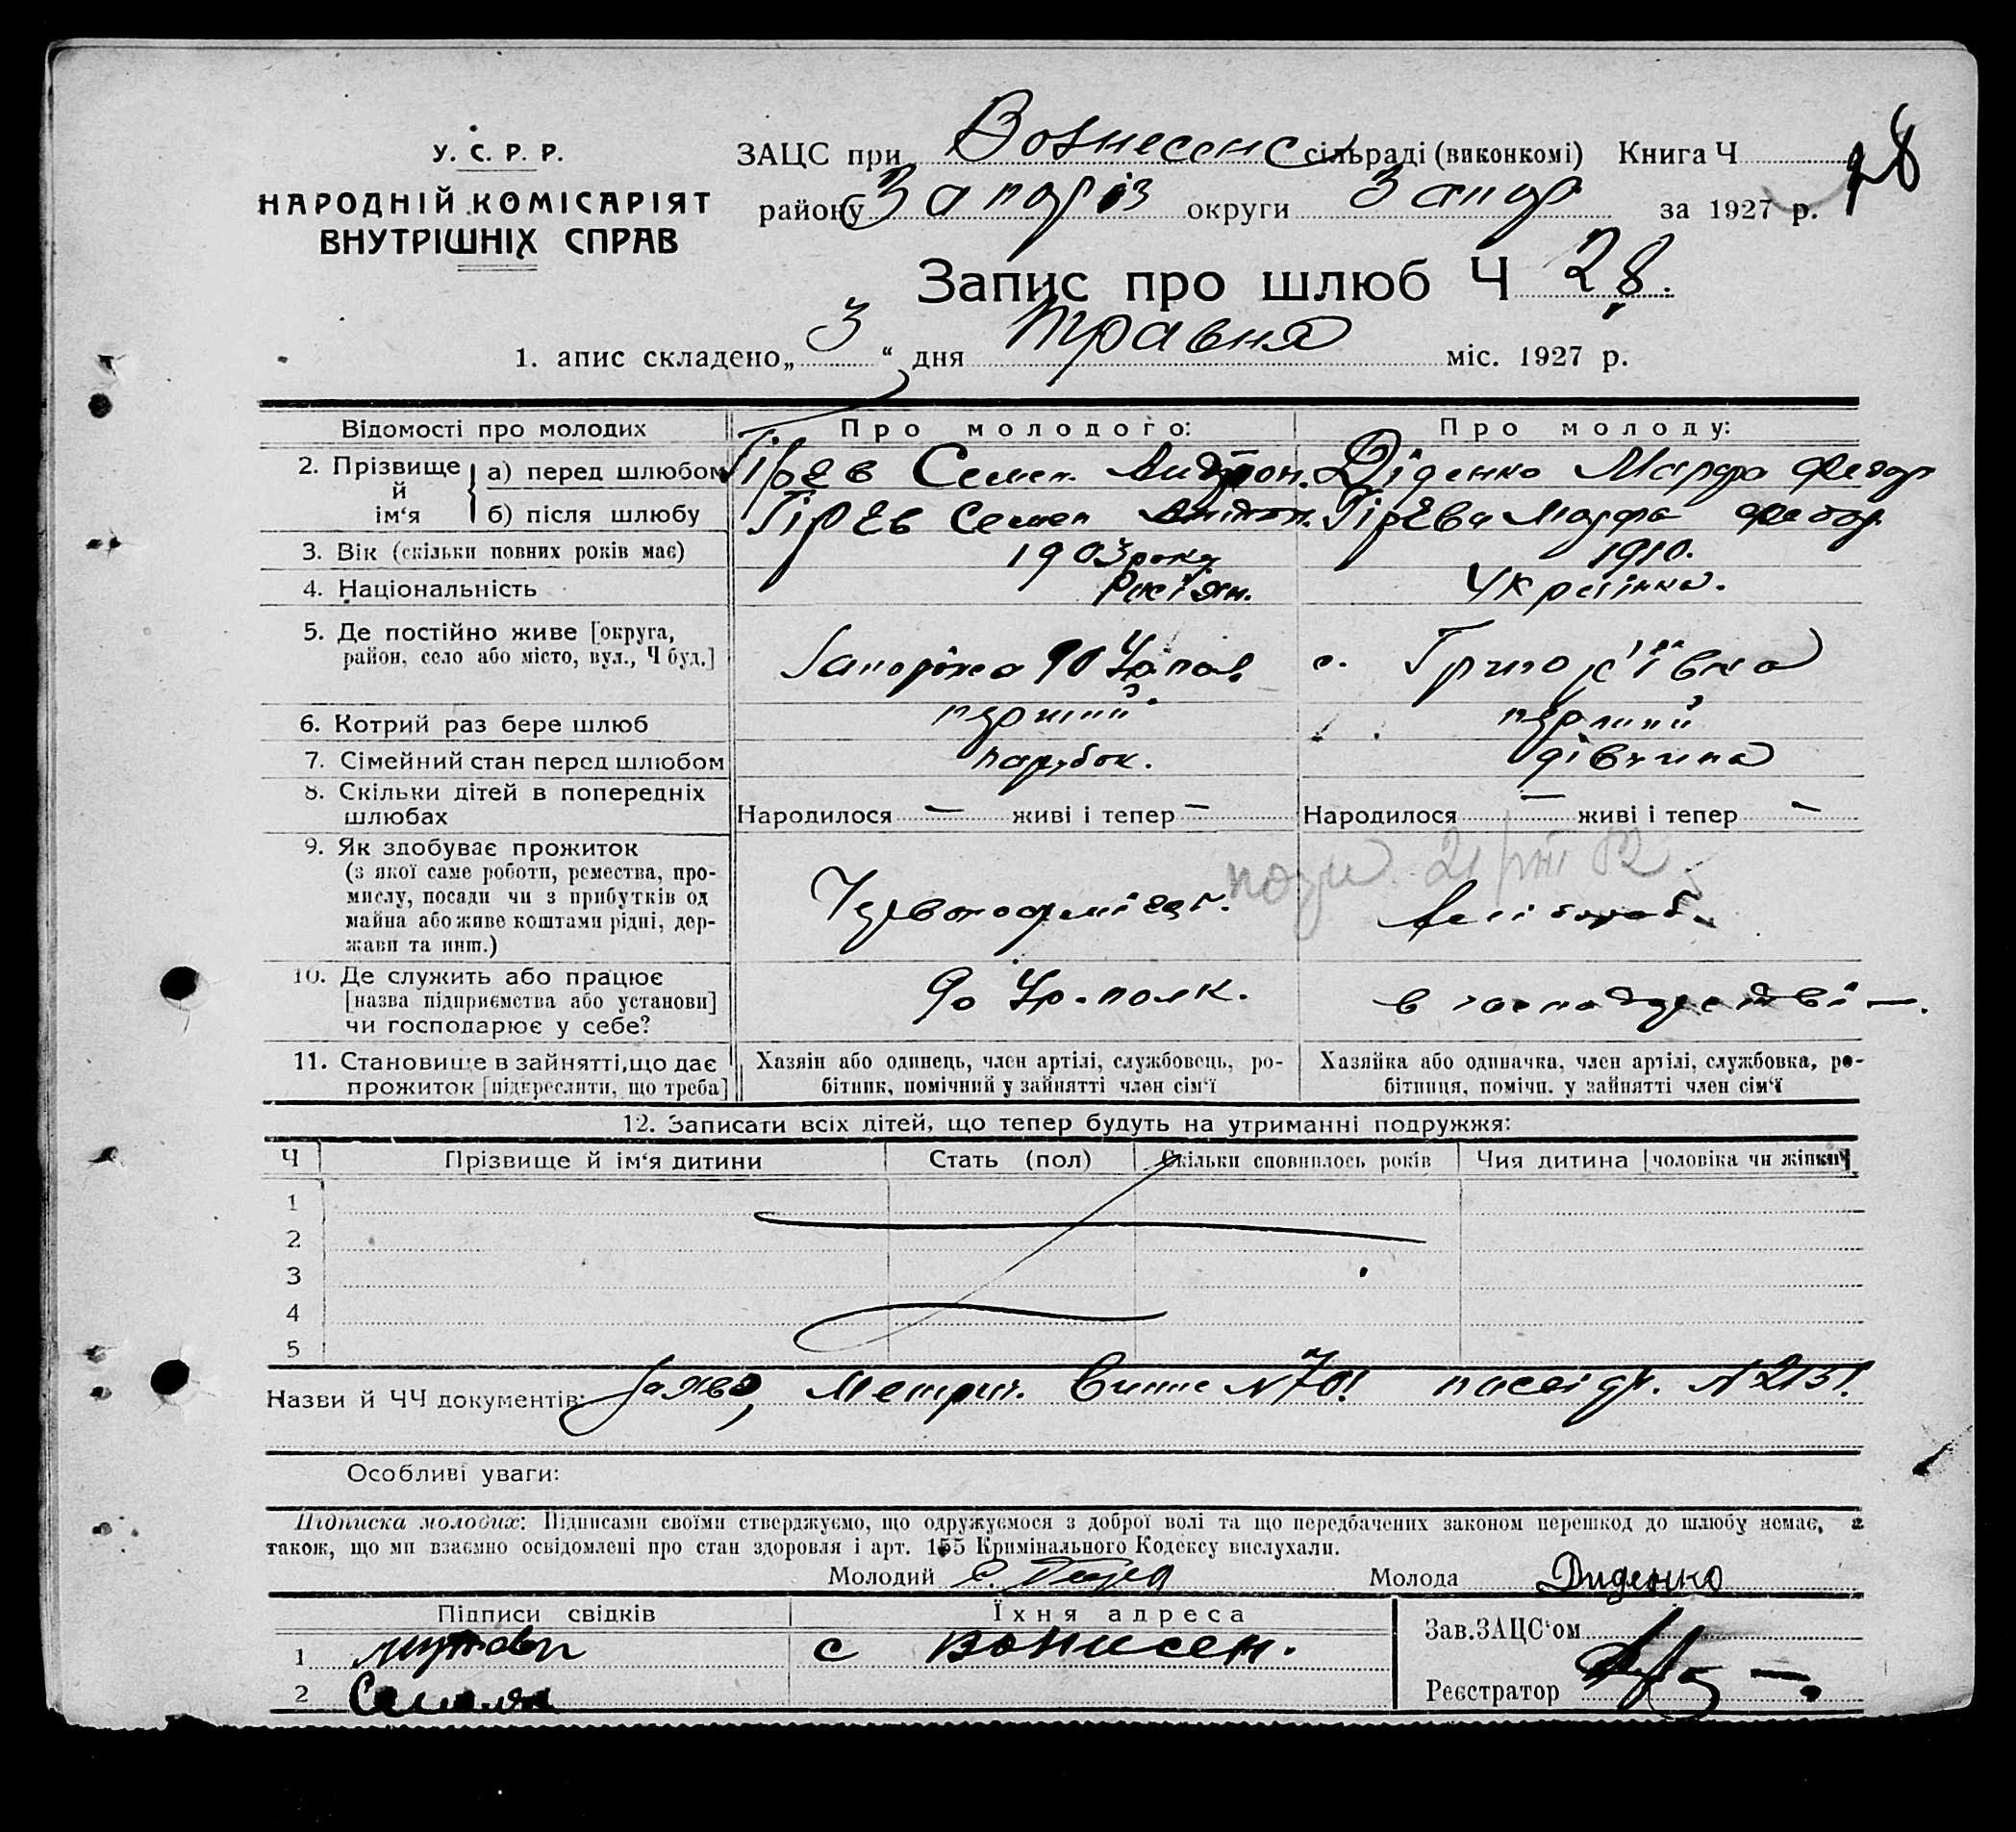 У. С. Р. Р.
НАРОДНІЙ КОМІСАРІЯТ
ВНУТРІШНІХ СПРАВ
ЗАЦС при Вознесенс сільраді (виконкомі) Книга Ч
28
району Запоріз округи Запор за 1927 р.
Запис про шлюб Ч 28.
1. апис складено „ 3 “ дня травня міс. 1927 р.
Відомості про молодих Про молодого: Про молоду:
2. Прізвище й ім‘я
а) перед шлюбом Гірев Семен Андрон. Діденко Марфа Федор
б) після шлюбу Гірев Семен Гірева Марфа Федор
3. Вік (скільки повних років має) 1903 року 1910.
4. Національність Росіян. Українка.
5. Де постійно живе [округа,
район, село або місто, вул., Ч буд.] 90 с. Григор'ївка
6. Котрий раз бере шлюб перший перший
7. Сімейний стан перед шлюбом парубок. дівчина
8. Скільки дітей в попередніх
шлюбах Народилося — живі і тепер — Народилося — живі і тепер —
9. Як здобуває прожиток
(з якої саме роботи, ремества, про-
мислу, посади чи з прибутків од
майна або живе коштами рідні, дер-
жави та инш.) Червоноармієць. хлібороб.
10. Де служить або працює
[назва підприємства або установи]
чи господарює у себе? 90 полк. в господарстві —.
11. Становище в зайнятті, що дає
прожиток [підкреслити, що треба]
Хазяїн або одинець, член артілі, службовець, ро-
бітник, помічний у зайнятті член сім‘ї
Хазяйка або одиначка, член артілі, службовка, ро-
бітниця, помічн. у зайнятті член сім‘ї
12. Записати всіх дітей, що тепер будуть на утриманні подружжя:
Ч Прізвище й ім‘я дитини Стать (пол) Скільки сповнилось років Чия дитина [чоловіка чи жінки]
1
2
3
4
5
Назви й ЧЧ документів: Заява, Метрич. Випис N 701 посвідч. N 2131.
Особливі уваги:
Підписка молодих: Підписами своїми стверджуємо, що одружуємося з доброї волі та що передбачених законом перешкод до шлюбу немає, а
також, що ми взаємно освідомлені про стан здоровля і арт. 155 Кримінального Кодексу вислухали.
Молодий Молода Диденко
Підписи свідків Їхня адреса
Зав.ЗАЦС‘ом
1 с Вознесен.
2
Реєстратор